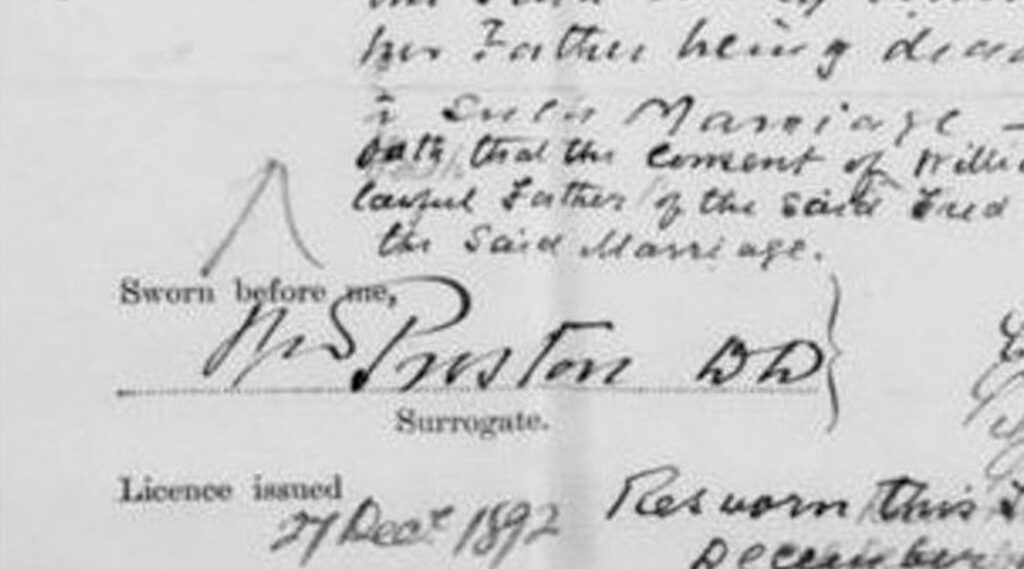 her Father being dead
such Marriage -
Oath, that the consent of Willi
lawful Father of the said Fred
the Said Marriage.
Sworn before me,
Wm S Preston DD
Surrogate.
Licence issued
27 Dect 1892
Resworn this
December